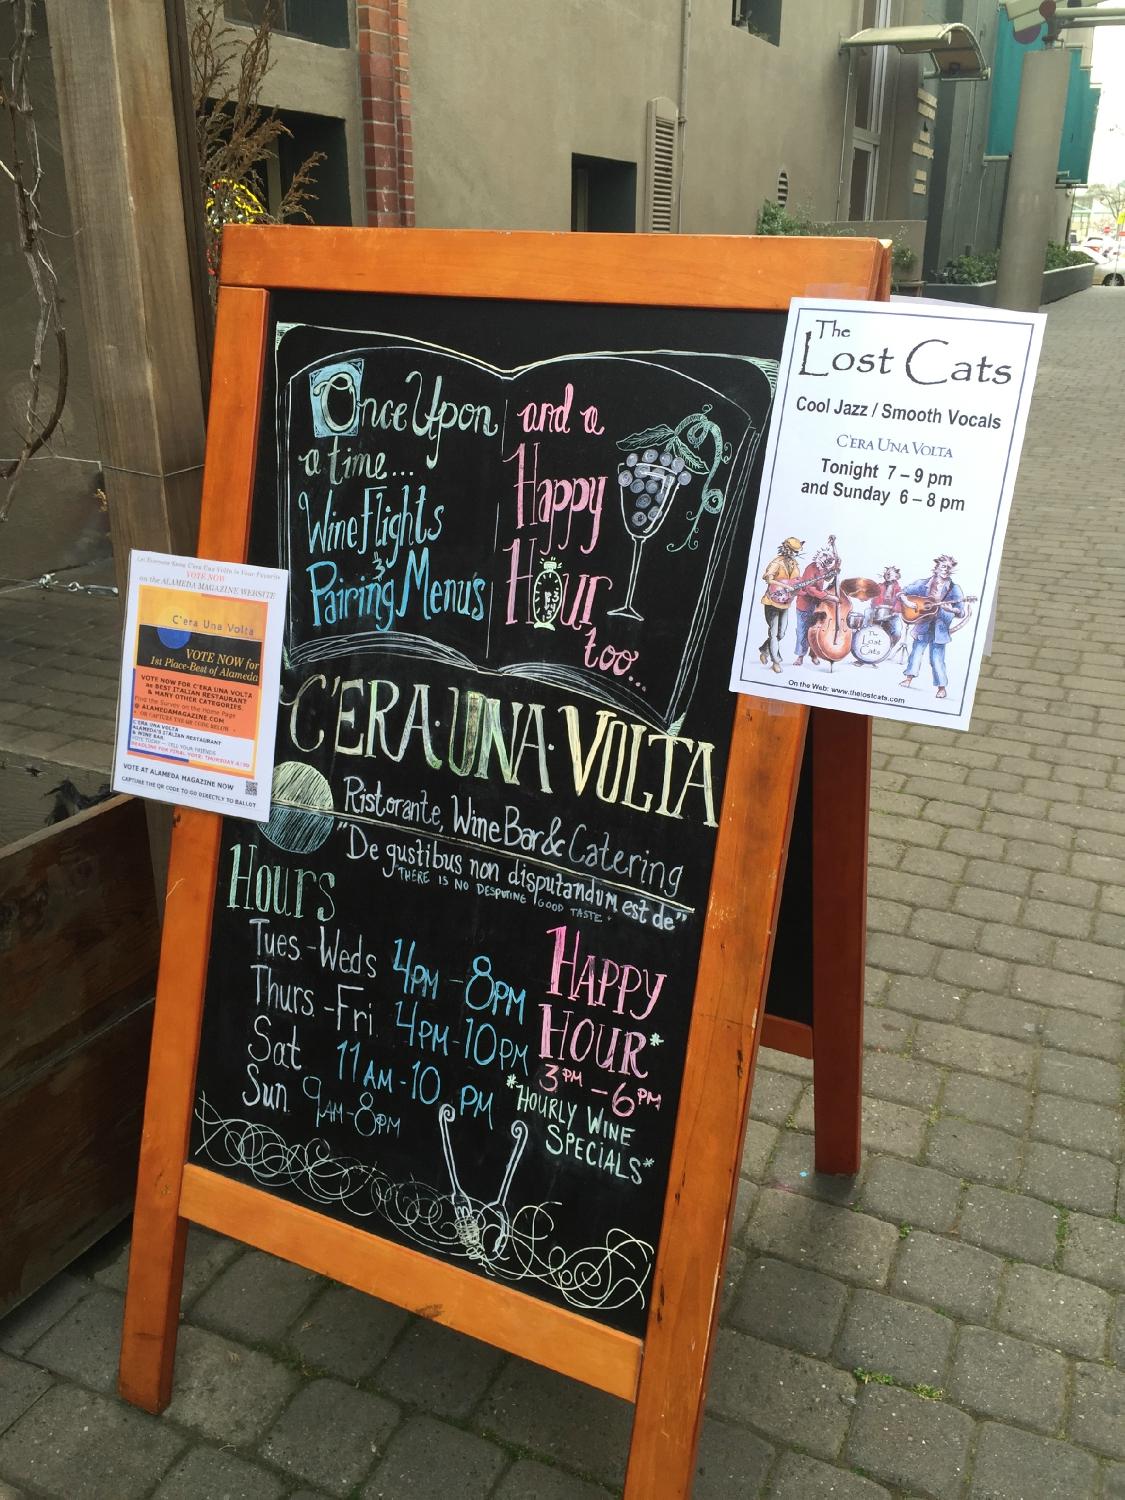 Once Upon
a time...
Wine Flights
&
Pairing Menu's
and a
Happy
Hour
too...
C'ERA·UNA·VOLTA
Ristorante, Wine Bar & Catering
"De gustibus non disputandum est de"
THERE IS NO DESPUTING GOOD TASTE.
Hours
Tues.-Weds 4PM-8PM
Thurs.-Fri. 4PM-10PM
Sat 11AM-10PM
Sun. 9AM-8PM
HAPPY
HOUR*
3PM-6PM
*HOURLY WINE
SPECIALS*
The
Lost Cats
Cool Jazz / Smooth Vocals
C'ERA UNA VOLTA
Tonight 7 – 9 pm
and Sunday 6 – 8 pm
The
Lost
Cats
On the Web: www.thelostcats.com
Let Everyone Know C'era Una Volta is Your Favorite
VOTE NOW
on the ALAMEDA MAGAZINE WEBSITE
C'era Una Volta
VOTE NOW for
1st Place-Best of Alameda
VOTE NOW FOR C'ERA UNA VOLTA
as BEST ITALIAN RESTAURANT
& MANY OTHER CATEGORIES
Find the Survey on the Home Page
@ ALAMEDAMAGAZINE.COM
- OR CAPTURE THE QR CODE BELOW -
C'ERA UNA VOLTA
ALAMEDA'S ITALIAN RESTAURANT
& WINE BAR
VOTE TODAY – TELL YOUR FRIENDS
DEADLINE FOR FINAL VOTE: THURSDAY 4/30
VOTE AT ALAMEDA MAGAZINE NOW
CAPTURE THE QR CODE TO GO DIRECTLY TO BALLOT